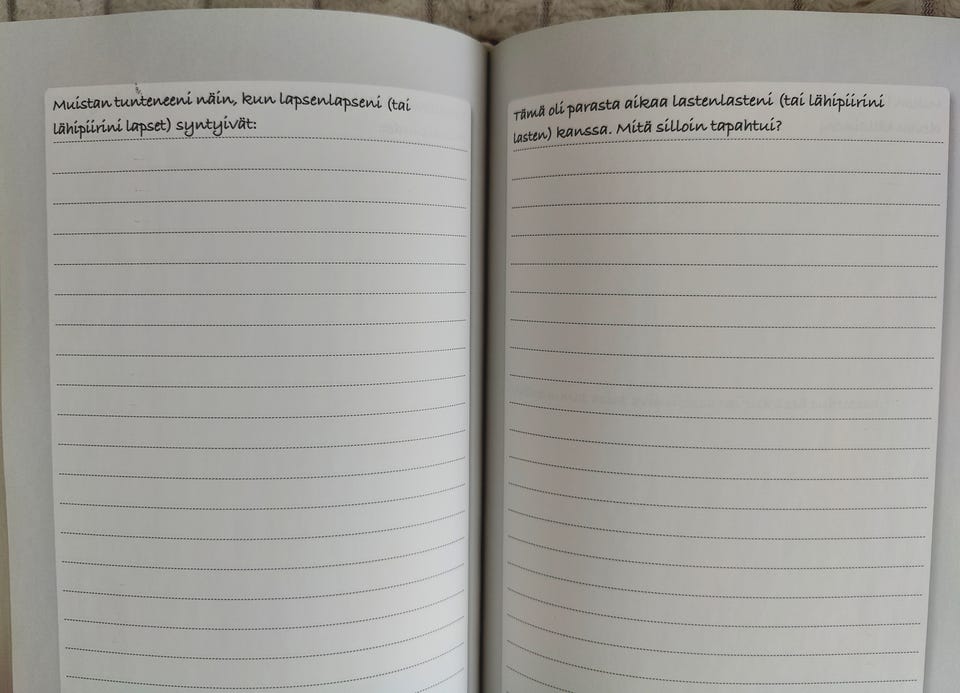 Muistan tunteneeni näin, kun lapsenlapseni (tai
lähipiirini lapset) syntyivät:
Tämä oli parasta aikaa lastenlasteni (tai lähipiirini
lasten) kanssa. Mitä silloin tapahtui?